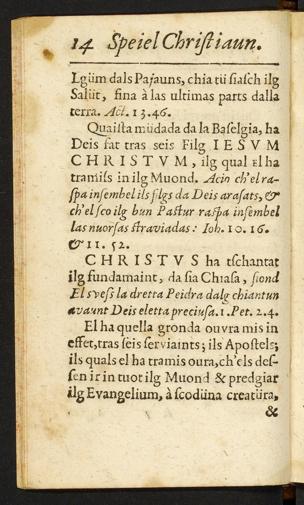 14 Speiel Christiaun.
Lgüm dals Paſauns, chia tü ſiaſch ilg
Salüt, fina à las ultimas parts dalla
terra. Act. 13.46.
Quaiſta müdada da la Baſelgia, ha
Deis fat tras ſeis Filg IESVM
CHRISTVM, ilg qual El ha
tramiſs in ilg Muond. Acio ch'el ra-
ſpa inſembel ils filgs da Deis araſats, &
ch'el ſco ilg bun Paſtur raſpa inſembel
las nuorſas ſtraviadas: Ioh. 10.16.
& 11.52.
CHRISTVS ha tſchantat
ilg fundamaint, da ſia Chiaſa, ſiond
El ſveſs la dretta Peidra dalg chiantun
avaunt Deis eletta preciuſa. 1. Pet. 2.4.
El ha quella gronda ouvra mis in
effet, tras ſeis ſerviaints; ils Apoſtels;
ils quals el ha tramis oura, ch'els deſ-
ſen ir in tuot ilg Muond & predgiar
ilg Evangelium, à ſcodüna creatüra,
&